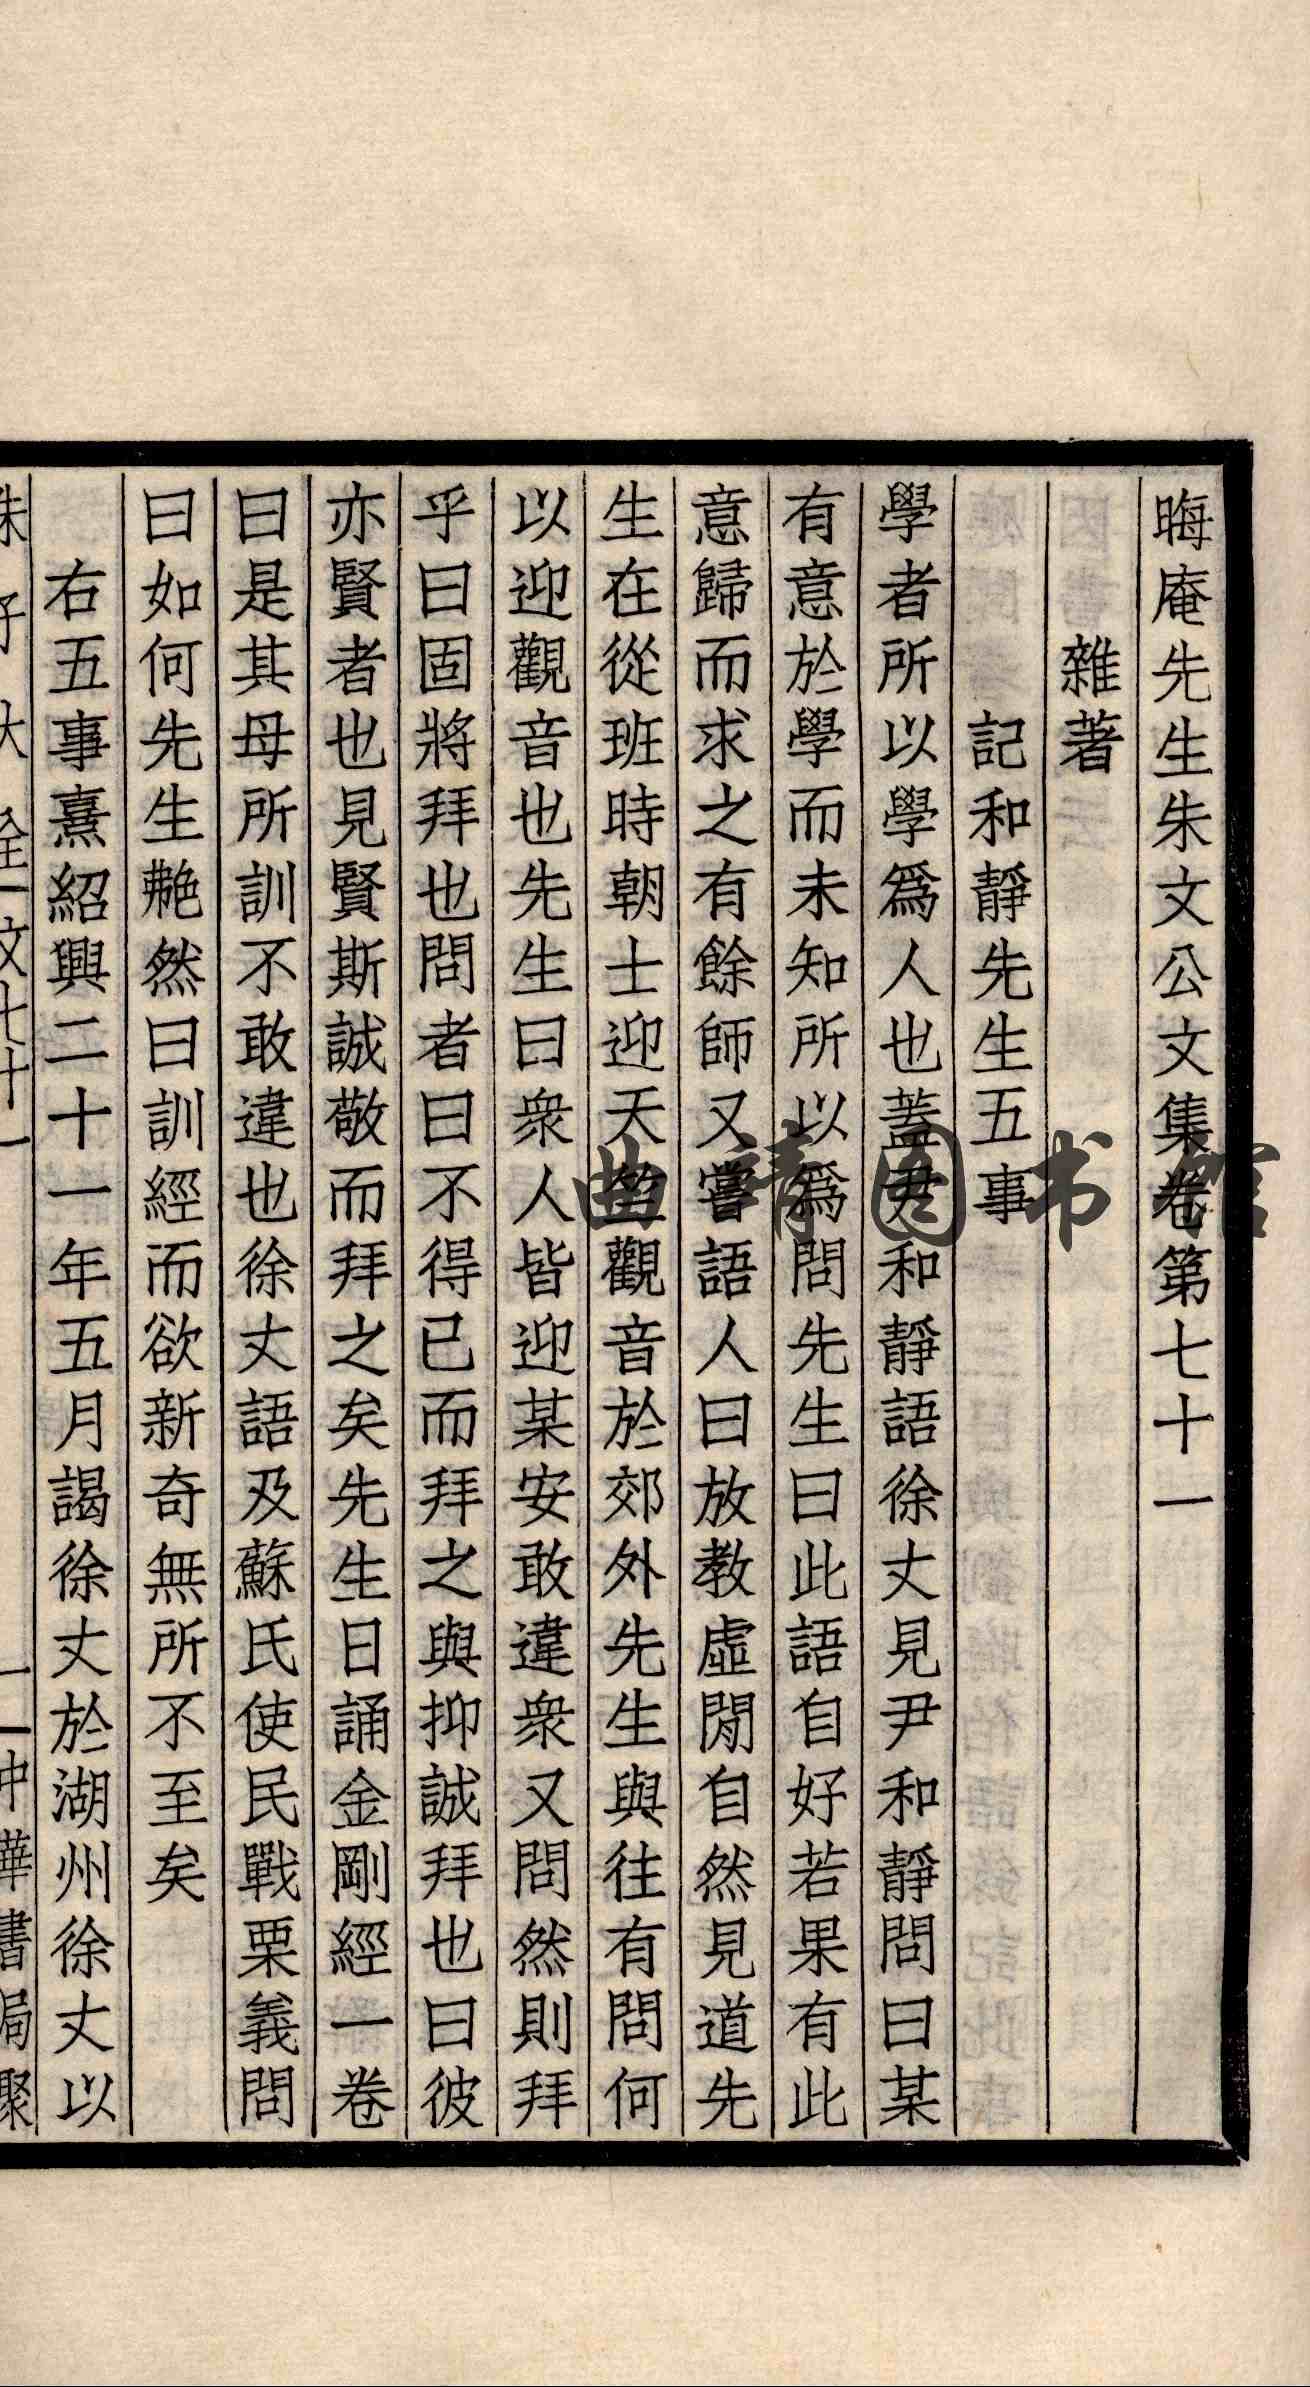 晦庵先生朱文公文集卷第七十一
雜著
記和靜先生五事
學者所以學爲人也蓋尹和靜語徐丈見尹和靜問曰某
有意於學而未知所以爲問先生曰此語自好若果有此
意歸而求之有餘師又嘗語人曰放教虛閒自然見道先
生在從班時朝士迎天竺觀音於郊外先生與往有問何
以迎觀音也先生曰衆人皆迎某安敢違衆又問然則拜
乎曰固將拜也問者曰不得已而拜之與抑誠拜也曰彼
亦賢者也見賢斯誠敬而拜之矣先生日誦金剛經一卷
曰是其母所訓不敢違也徐丈語及蘇氏使民戰栗義問
曰如何先生艴然曰訓經而欲新奇無所不至矣
右五事熹紹興二十一年五月謁徐丈於湖州徐丈以
朱子大全 文七十一 一 中華書局聚
曲靖图书馆